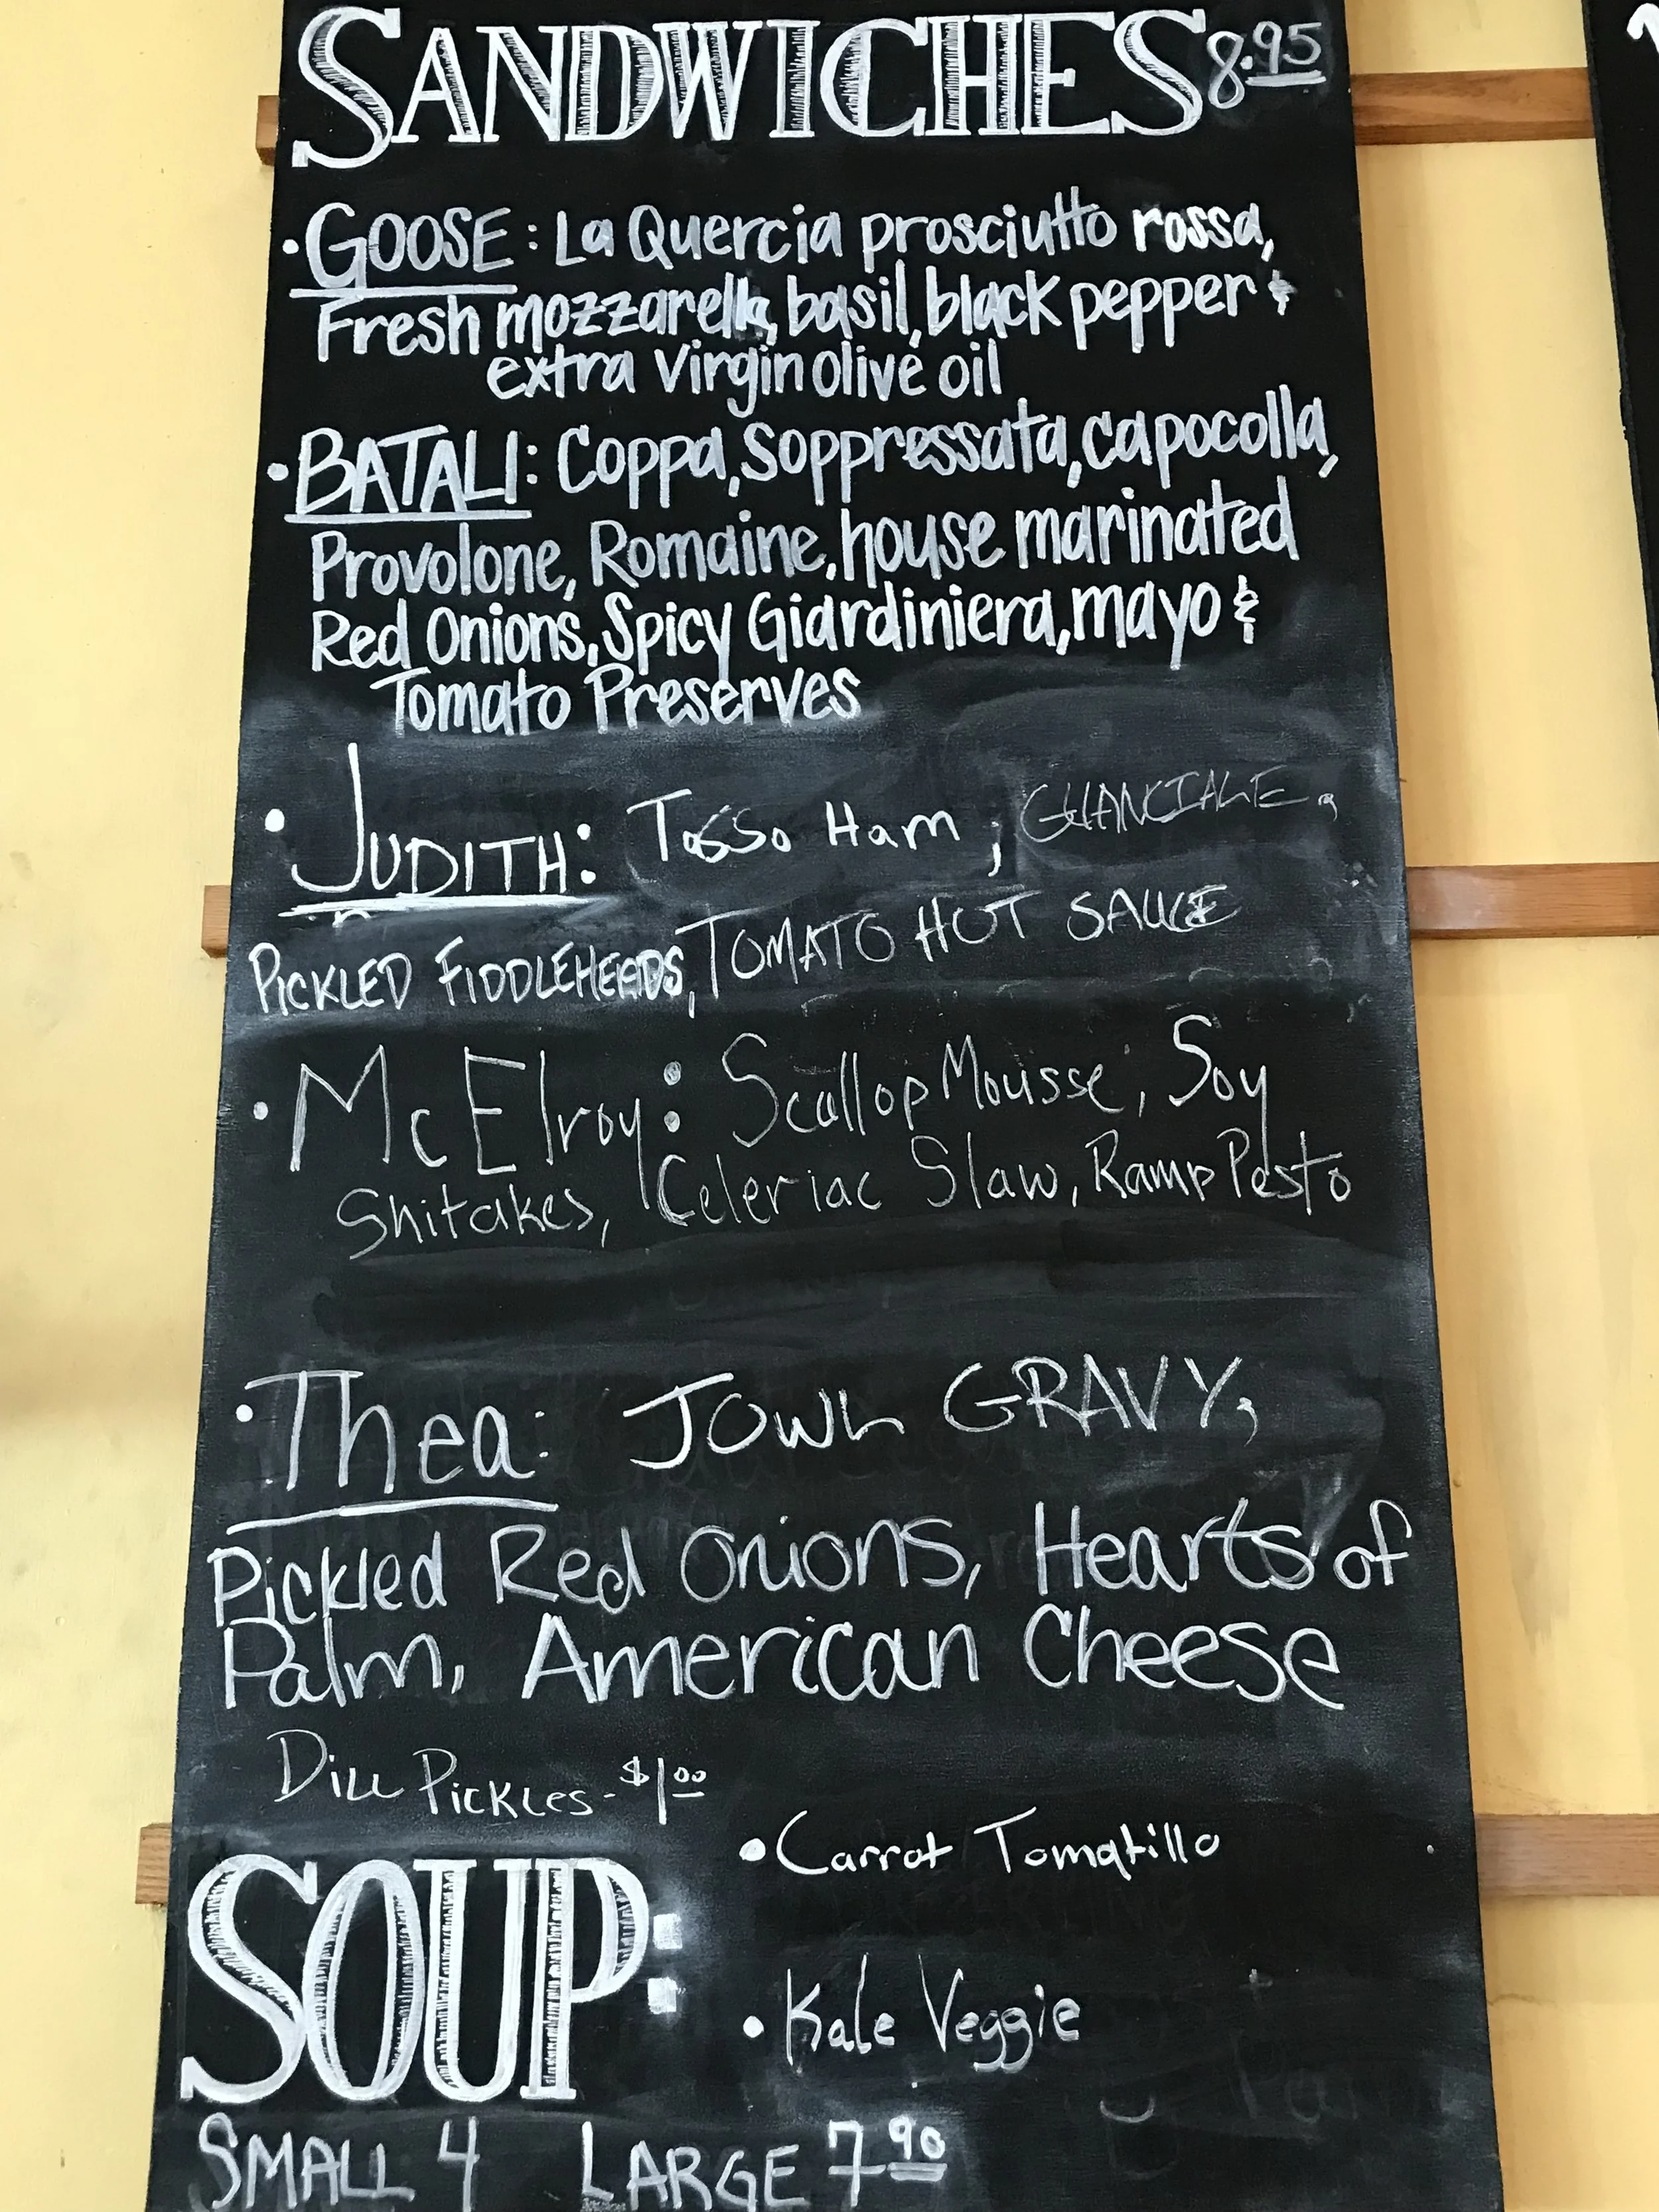 SANDWICHES 8.95
• GOOSE: La Quercia prosciutto rossa,
Fresh mozzarella, basil, black pepper &
extra virgin olive oil
• BATALI: Coppa, Soppressata, capocolla,
Provolone, Romaine, house marinated
Red Onions, Spicy Giardiniera, mayo &
Tomato Preserves
• JUDITH: Tasso Ham, GUANCIALE,
PICKLED FIDDLEHEADS, TOMATO HOT SAUCE
• McElroy: Scallop Mousse, Soy
Shitakes, Celeriac Slaw, Ramp Pesto
• Thea: JOWL GRAVY,
Pickled Red Onions, Hearts of
Palm, American Cheese
DILL PICKLES - $1.00
SOUP:
• Carrot Tomatillo
• Kale Veggie
SMALL 4 LARGE 7.90